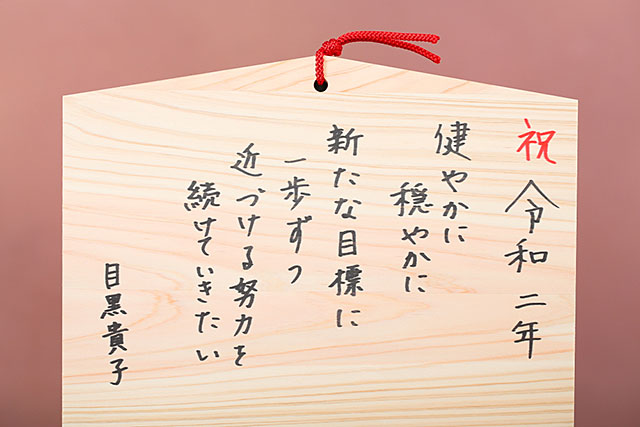 祝 令和二年
健やかに
穏やかに
新たな目標に
一歩ずつ
近づける努力を
続けていきたい
目黒貴子